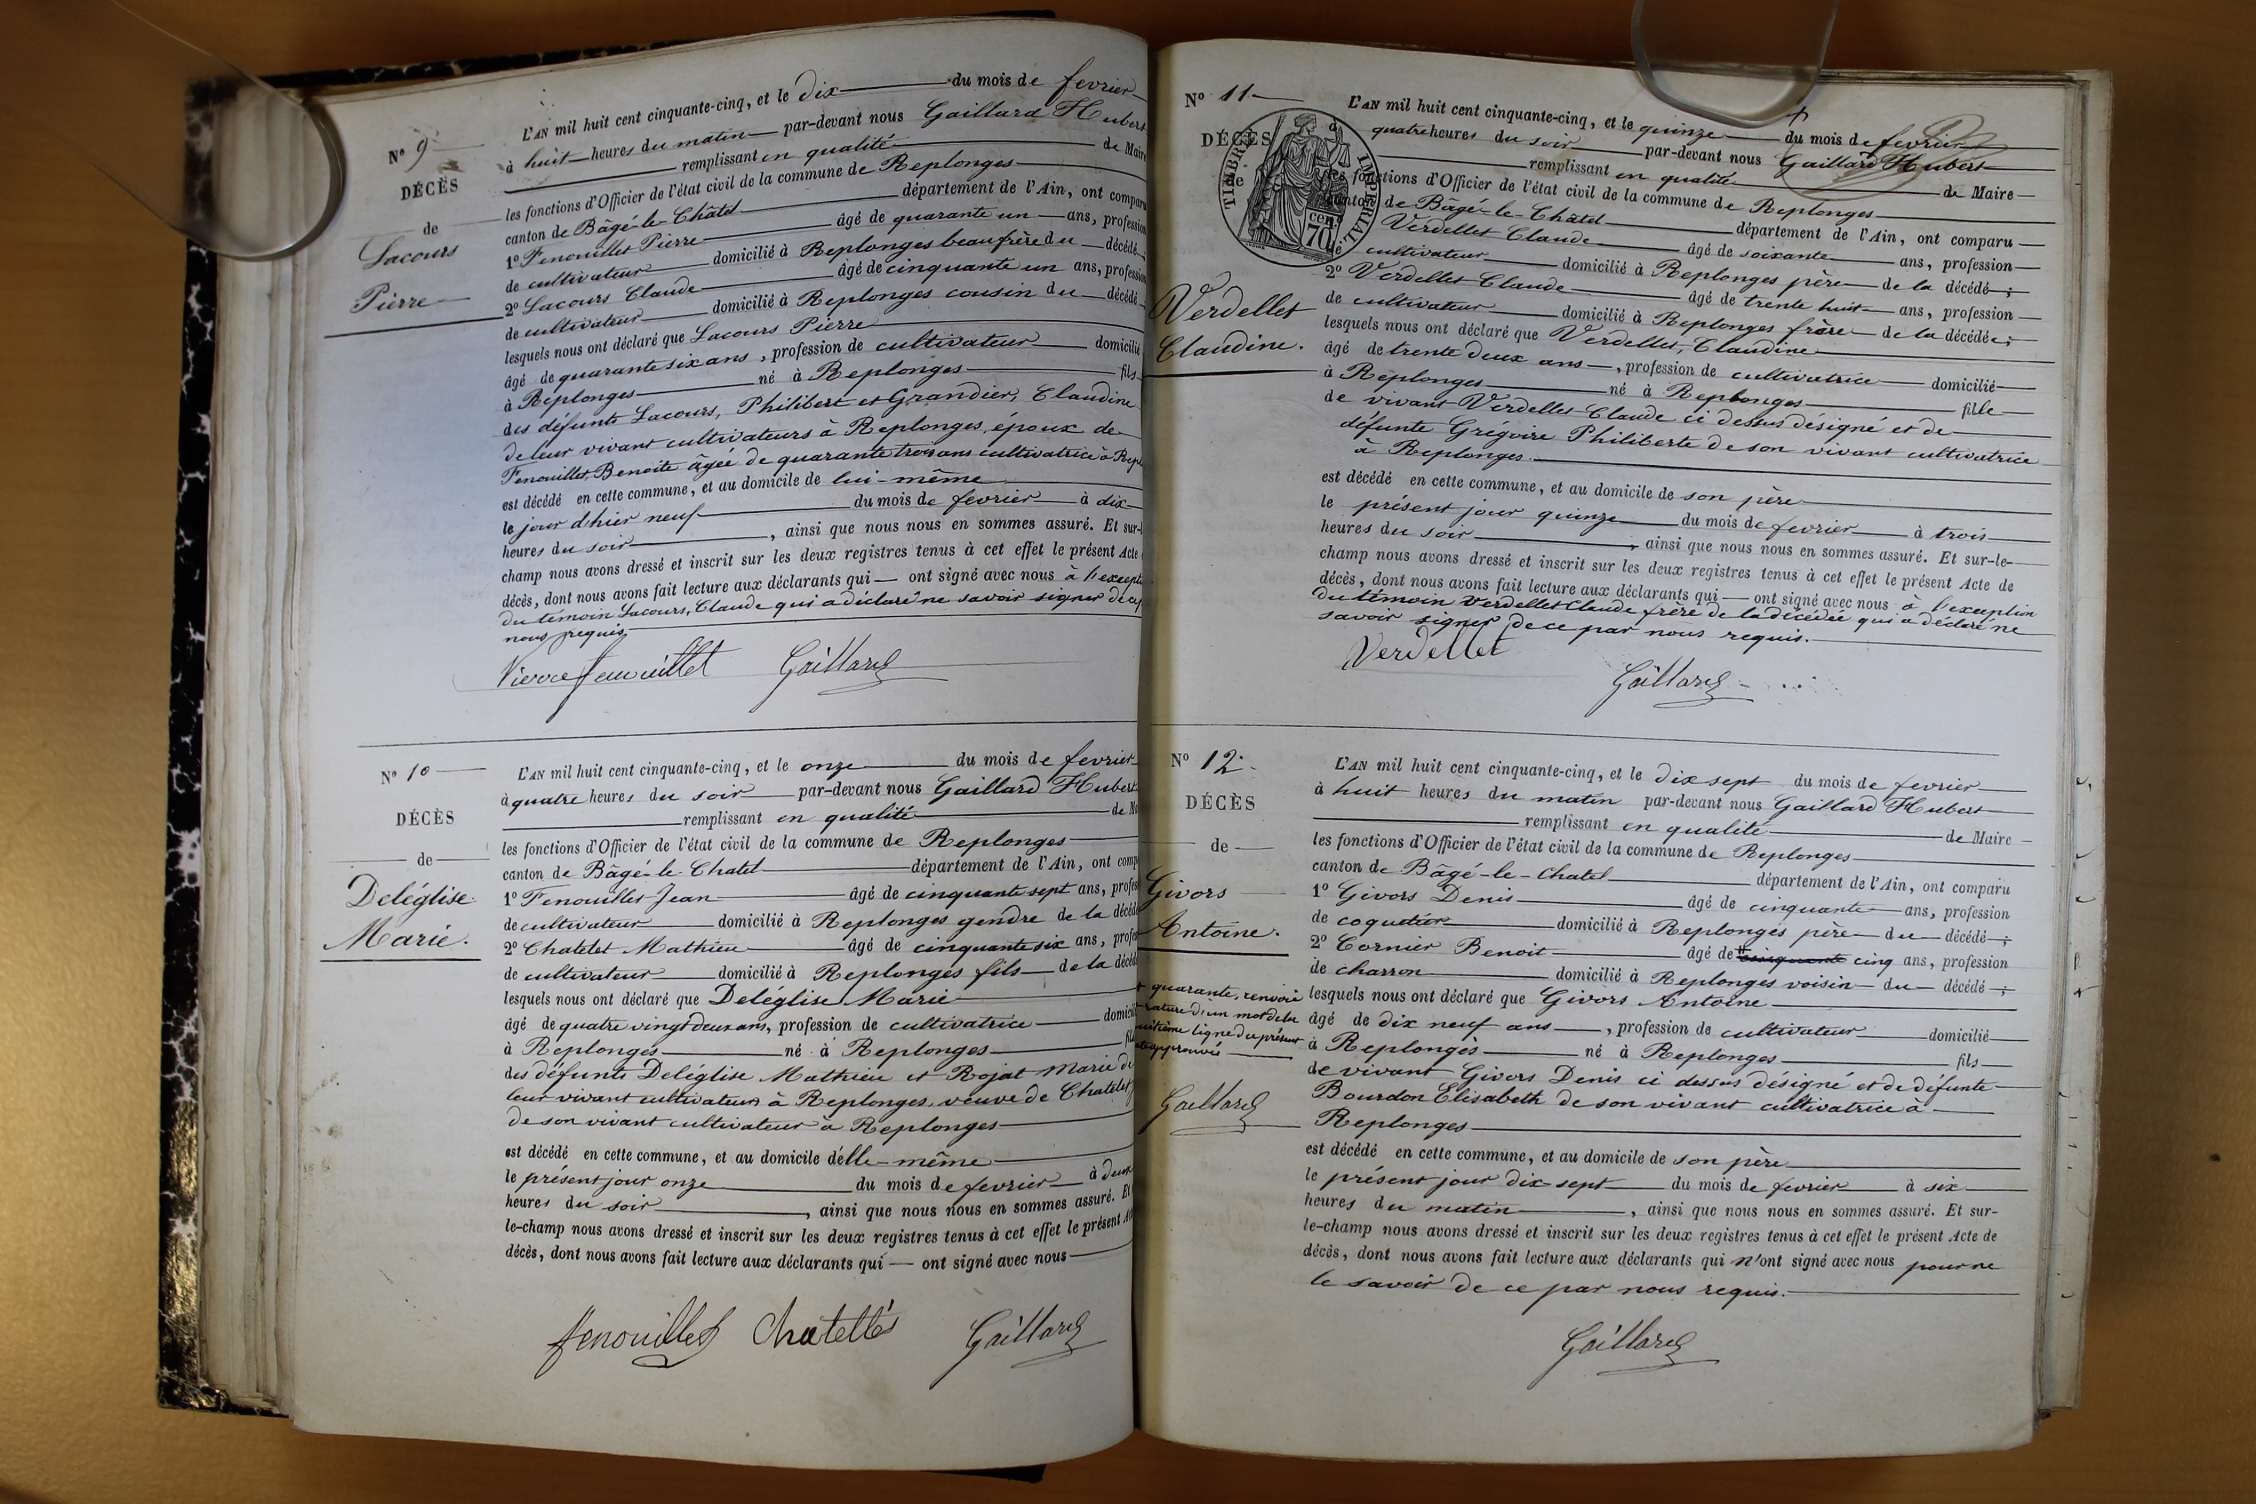 No 9
DÉCÈS
de
Lacours
Pierre
L'AN mil huit cent cinquante-cinq, et le dix du mois de fevrier
à huit heures du matin par-devant nous Gaillard Hubert
remplissant en qualité de Maire
les fonctions d'Officier de l'état civil de la commune de Replonges
canton de Bâgé-le-Châtel département de l'Ain, ont comparu
1º Fenouillet Pierre âgé de quarante un ans, profession
de cultivateur domicilié à Replonges beaufrère du décédé
2º Lacours Claude âgé de cinquante un ans, profession
de cultivateur domicilié à Replonges cousin du décédé
lesquels nous ont déclaré que Lacours Pierre
âgé de quarante six ans, profession de cultivateur domicilié
à Replonges né à Replonges fils
des défunts Lacours, Philibert et Grandier, Claudine
de leur vivant cultivateurs à Replonges, époux de
Fenouillet, Benoite âgée de quarante trois ans cultivatrice à Repl
est décédé en cette commune, et au domicile de lui-même
le jour d'hier neuf du mois de fevrier à dix
heures du soir, ainsi que nous nous en sommes assuré. Et sur-l
champ nous avons dressé et inscrit sur les deux registres tenus à cet effet le présent Acte
décès, dont nous avons fait lecture aux déclarants qui — ont signé avec nous à l'excepti
du témoin Lacours, Claude qui a déclaré ne savoir signer de ce p
nous requis.
Pierre fenouillet Gaillard
No 10
DÉCÈS
de
Deléglise
Marie.
L'AN mil huit cent cinquante-cinq, et le onze du mois de fevrier
à quatre heures du soir par-devant nous Gaillard Hubert
remplissant en qualité de Ma
les fonctions d'Officier de l'état civil de la commune de Replonges
canton de Bâgé-le-Chatel département de l'Ain, ont comp
1º Fenouillet Jean âgé de cinquante sept ans, profes
de cultivateur domicilié à Replonges gendre de la décédé
2º Chatelet Mathieu âgé de cinquante six ans, profes
de cultivateur domicilié à Replonges fils de la décédé
lesquels nous ont déclaré que Deléglise Marie
âgé de quatre vingt deux ans, profession de cultivatrice domicilié
à Replonges né à Replonges fil
des défunts Deléglise Mathieu et Rojat Marie de
leur vivant cultivateurs à Replonges, veuve de Chatelet
de son vivant cultivateur à Replonges
est décédé en cette commune, et au domicile d'elle-même
le présent jour onze du mois de fevrier à deux
heures du soir, ainsi que nous nous en sommes assuré. Et
le-champ nous avons dressé et inscrit sur les deux registres tenus à cet effet le présent A
décès, dont nous avons fait lecture aux déclarants qui — ont signé avec nous
fenouillet Chatellés Gaillard
No 11
DÉCÈS
de
TIMBRE IMPÉRIAL
cent
70
Verdellet
Claudine.
L'AN mil huit cent cinquante-cinq, et le quinze du mois de fevrier
à quatre heures du soir par-devant nous Gaillard Hubert
remplissant en qualité de Maire
les fonctions d'Officier de l'état civil de la commune de Replonges
canton de Bâgé-le-Châtel département de l'Ain, ont comparu
Verdellet Claude âgé de soixante ans, profession
de cultivateur domicilié à Replonges père de la décédé;
2º Verdellet Claude âgé de trente huit ans, profession
de cultivateur domicilié à Replonges frère de la décédée;
lesquels nous ont déclaré que Verdellet, Claudine
âgé de trente deux ans, profession de cultivatrice domicilié
à Replonges né à Replonges fille
de vivant Verdellet Claude ci dessus désigné et de
défunte Grégoire Philiberte de son vivant cultivatrice
à Replonges.
est décédé en cette commune, et au domicile de son père
le présent jour quinze du mois de fevrier à trois
heures du soir, ainsi que nous nous en sommes assuré. Et sur-le-
champ nous avons dressé et inscrit sur les deux registres tenus à cet effet le présent Acte de
décès, dont nous avons fait lecture aux déclarants qui — ont signé avec nous à l'exception
du témoin Verdellet Claude frère de la décédée qui a déclaré ne
savoir signer de ce par nous requis.
Verdellet
Gaillard
No 12.
DÉCÈS
de
Givors
Antoine.
+ quarante, renvoi
rature d'un mot de la
huitième ligne du présent
acte approuvés
Gaillard
L'AN mil huit cent cinquante-cinq, et le dix sept du mois de fevrier
à huit heures du matin par-devant nous Gaillard Hubert
remplissant en qualité de Maire
les fonctions d'Officier de l'état civil de la commune de Replonges
canton de Bâgé-le-Chatel département de l'Ain, ont comparu
1º Givors Denis âgé de cinquante ans, profession
de coquetier domicilié à Replonges père du décédé;
2º Cornier Benoit âgé de + cinquante cinq ans, profession
de charron domicilié à Replonges voisin du décédé;
lesquels nous ont déclaré que Givors Antoine
âgé de dix neuf ans, profession de cultivateur domicilié
à Replonges né à Replonges fils
de vivant Givors Denis ci dessus désigné et de défunte
Bourdon Elisabeth de son vivant cultivatrice à
Replonges
est décédé en cette commune, et au domicile de son père
le présent jour dix-sept du mois de fevrier à six
heures du matin, ainsi que nous nous en sommes assuré. Et sur-
le-champ nous avons dressé et inscrit sur les deux registres tenus à cet effet le présent Acte de
décès, dont nous avons fait lecture aux déclarants qui n'ont signé avec nous pour ne
le savoir de ce par nous requis.
Gaillard